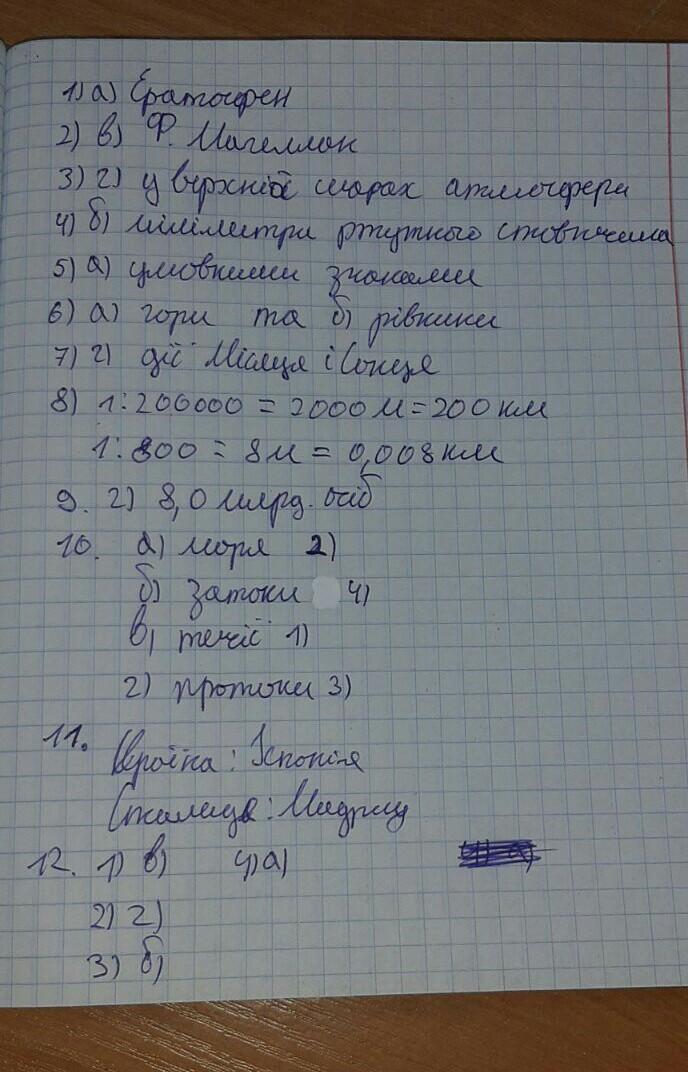 1) а) Ератосфен
2) в) Ф. Магеллан
3) г) у верхній шарах атмосфери
4) б) міліметри ртутного стовпчика
5) а) умовними знаками
6) а) гори та б) рівнини
7) г) дії Місяця і Сонця
8) 1:200000 = 2000 м = 200 км
1:800 = 8 м = 0,008 км
9. г) 8,0 млрд. осіб
10. а) моря 2)
б) затоки 4)
в) течії 1)
г) протоки 3)
11.
Країна: Іспанія
Столиця: Мадрид
12. 1) в) 4) а)
2) г)
3) б)